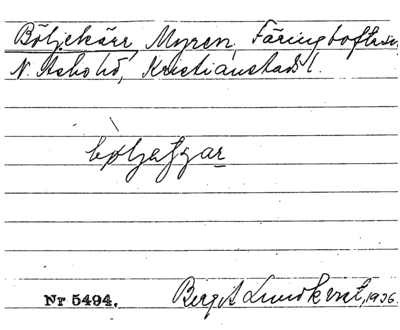 Böljekärr, Myren, Färingtofta s.
N. Åsbo hd, Kristianstads l.
Nr 5494. Bergit Lundkvist, 1936.